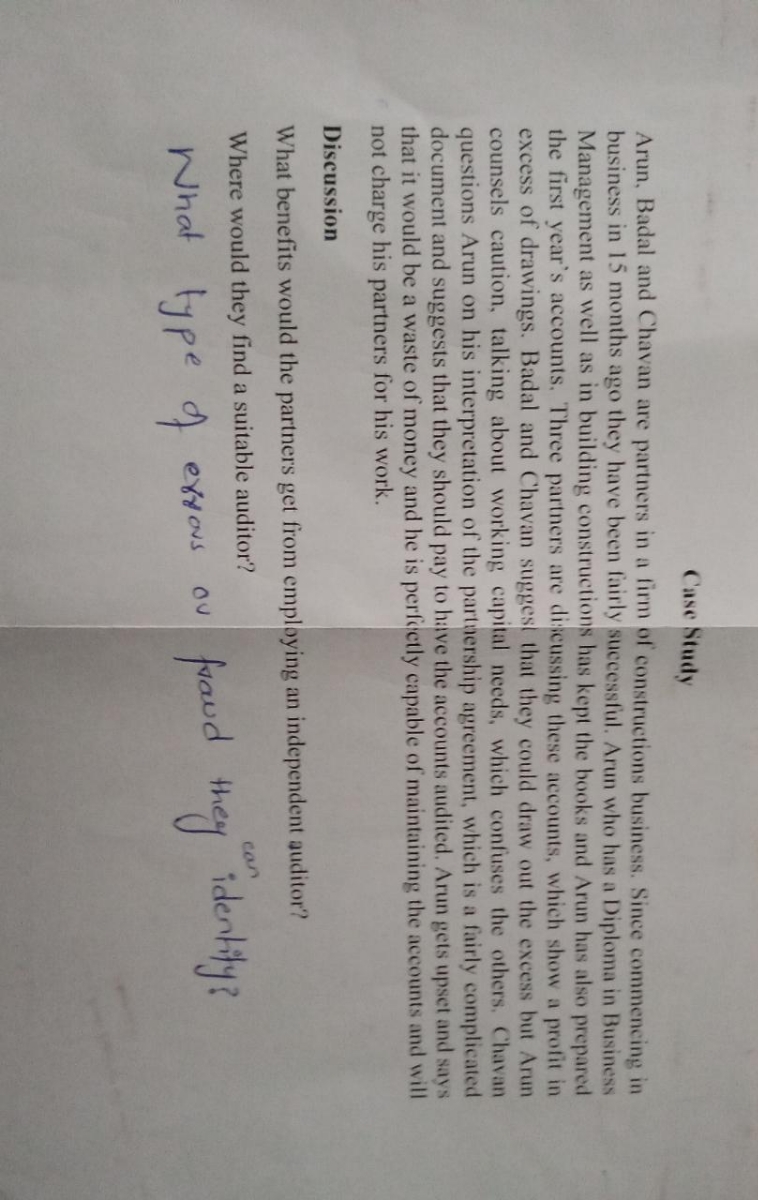 Case Study
Arun, Badal and Chavan are partners in a firm of constructions business. Since commencing in
business in 15 months ago they have been fairly successful. Arun who has a Diploma in Business
Management as well as in building constructions has kept the books and Arun has also prepared
the first year's accounts. Three partners are discussing these accounts, which show a profit in
excess of drawings. Badal and Chavan suggest that they could draw out the excess but Arun
counsels caution, talking about working capital needs, which confuses the others. Chavan
questions Arun on his interpretation of the partnership agreement, which is a fairly complicated
document and suggests that they should pay to have the accounts audited. Arun gets upset and says
that it would be a waste of money and he is perfectly capable of maintaining the accounts and will
not charge his partners for his work.
Discussion
What benefits would the partners get from employing an independent auditor?
Where would they find a suitable auditor?
What type of errors or fraud they can identify?